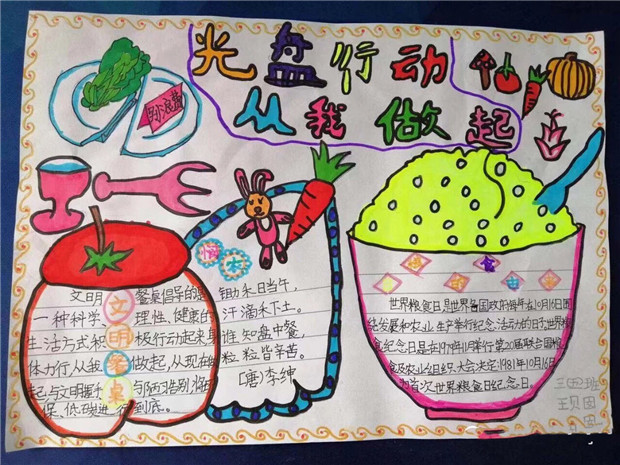 光盘行动
从我做起
勿浪费
悯农
文明餐桌
文明餐桌倡导的是
一种科学、理性、健康的
生活方式积极行动起来身
体力行从我做起,从现在做
起与文明握手与陋习告别
保、低碳进行到底。
锄禾日当午,
汗滴禾下土。
谁知盘中餐
粒粒皆辛苦。
[唐]李绅
食
世界粮食日是世界各国政府每年在10月16日围
绕发展和农业生产举行纪念活动的日子世界粮
食纪念日是在1979年11月举行第20届联合国粮
食及农业组织大会决定:1981年10月16日
首次世界粮食日纪念日。
三四班